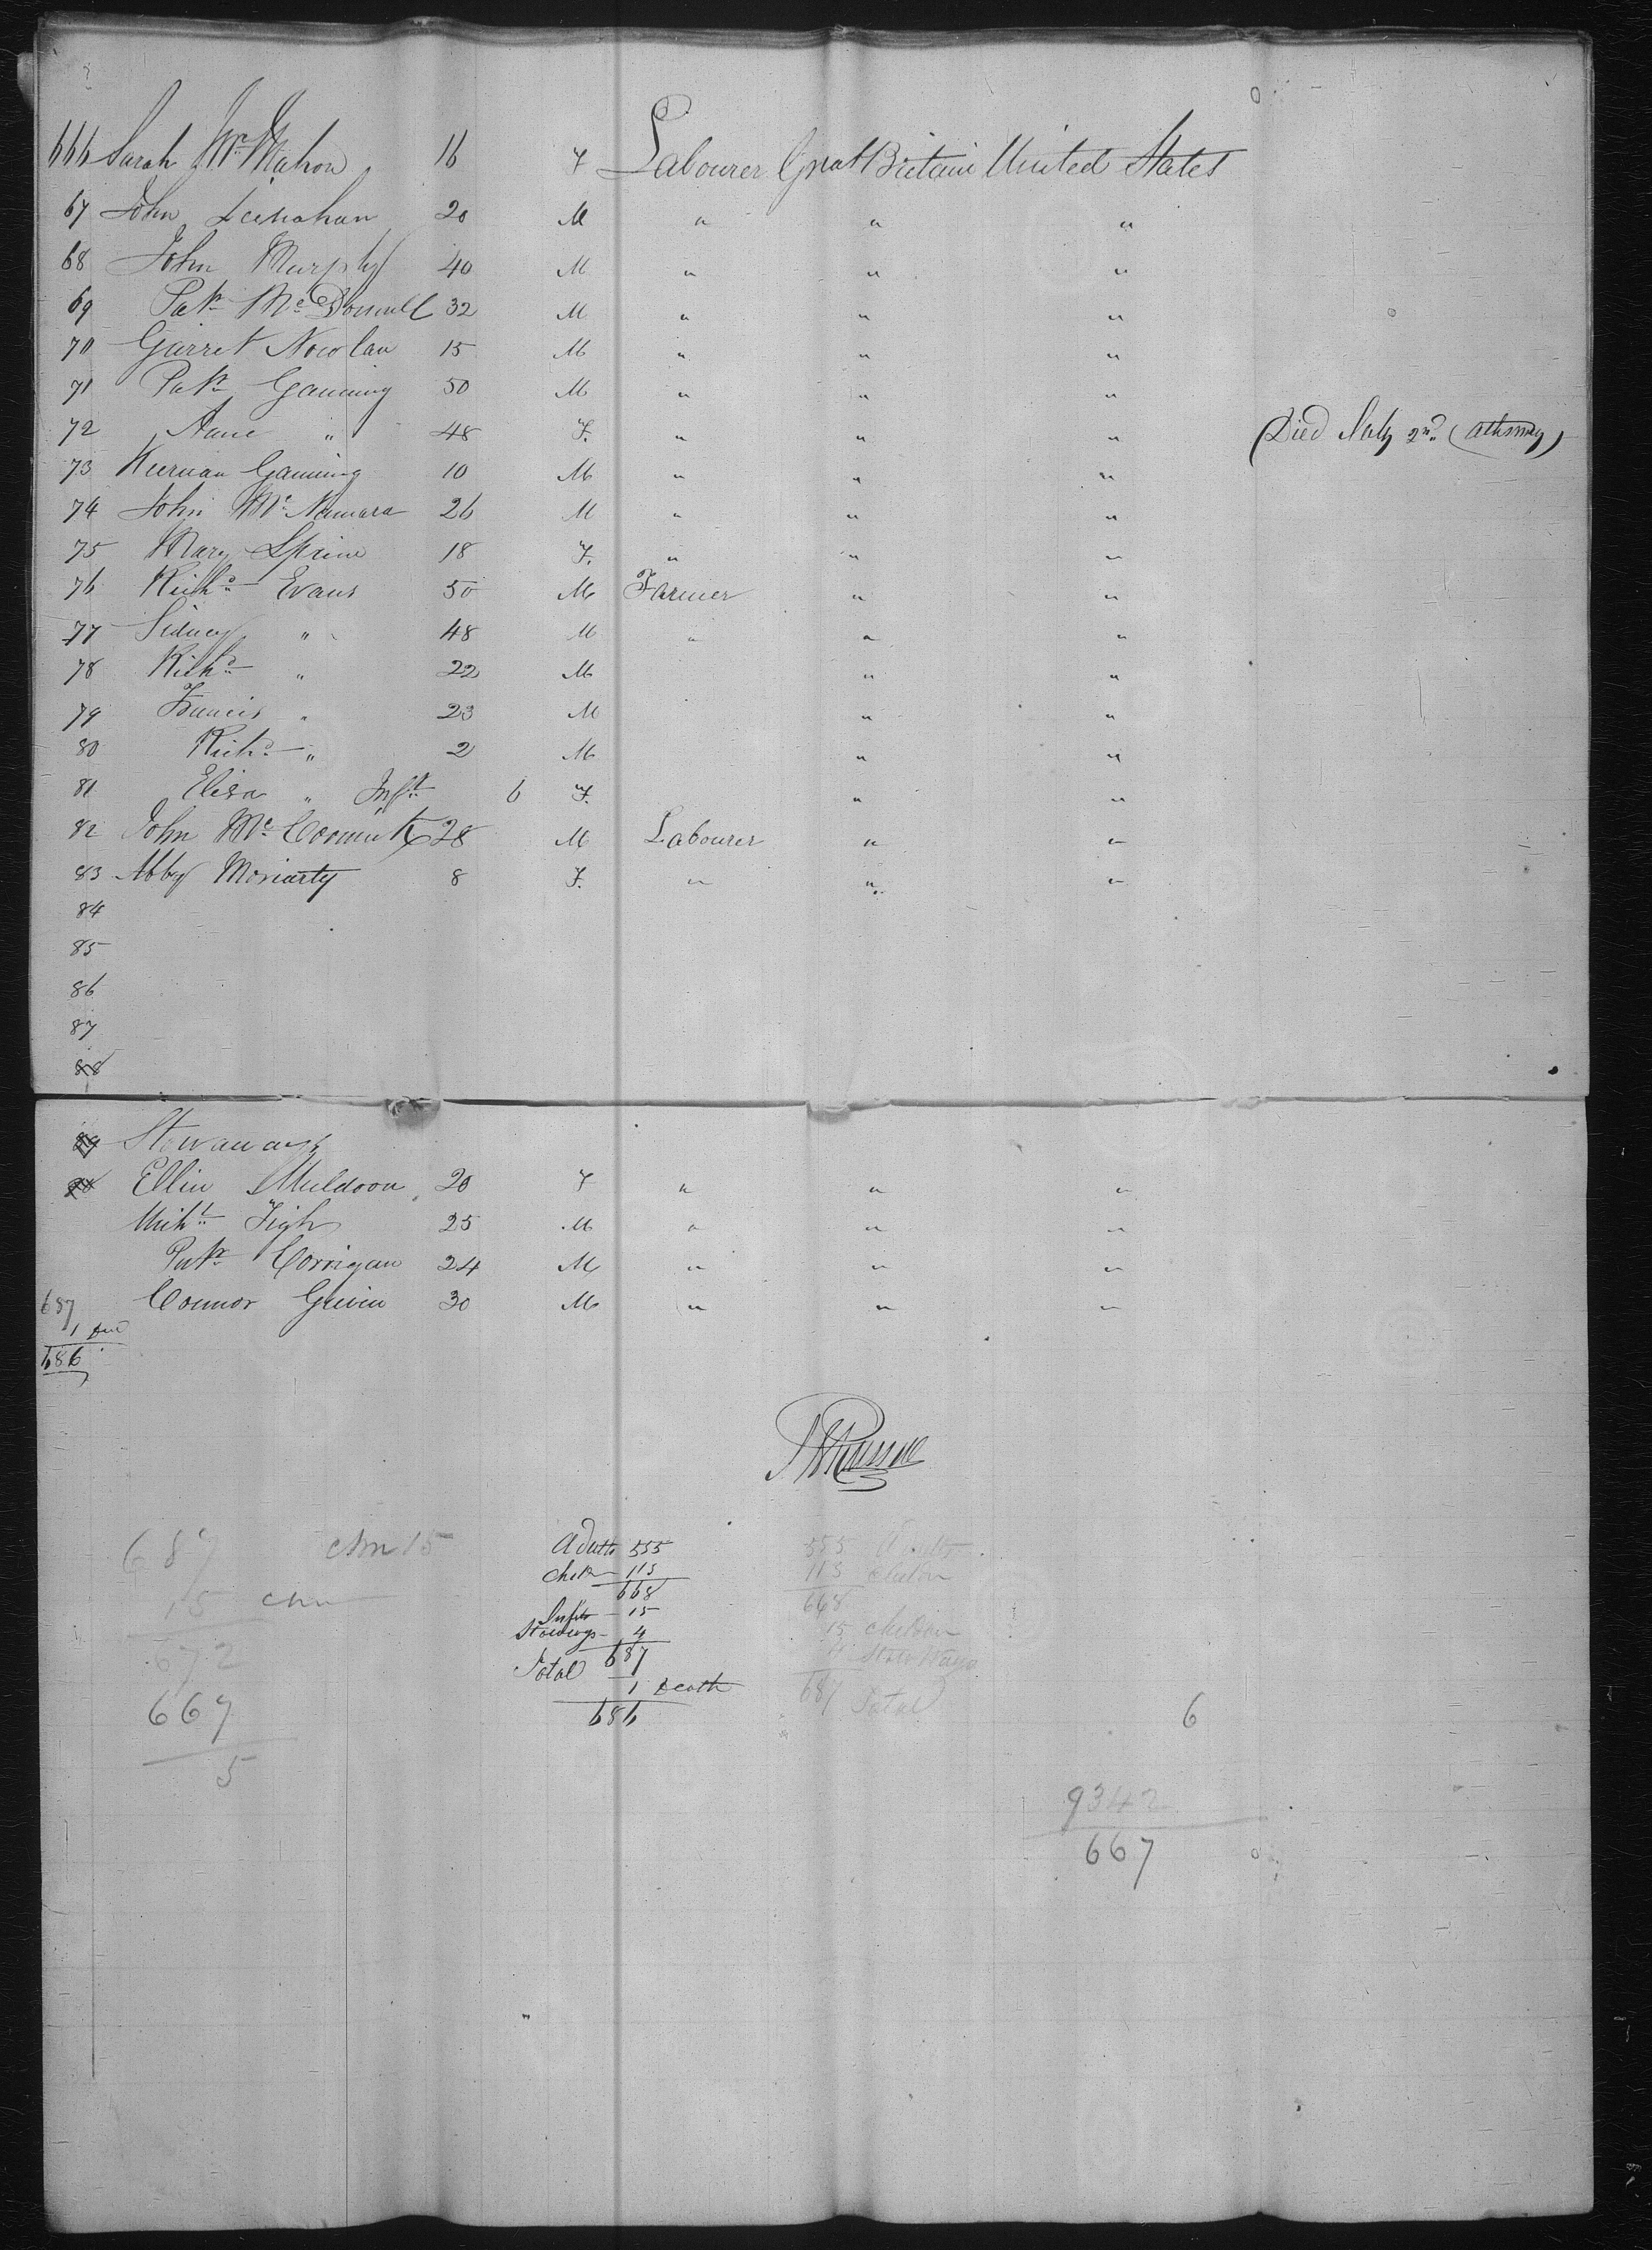 666 Sarah McMahon 16 F Labourer Great Britain United States
67 John Lenahan 20 M " " "
68 John Murphy 40 M " " "
69 Patk McDonnell 32 M " " "
70 Garret Nowlan 15 M " " "
71 Patk Ganning 50 M " " "
72 " 48 F. " " " (Died July 2nd
73 Kiernan Ganning 10 M " " "
74 John McNamara 26 M " " "
75 Mary 18 F. " " "
76 Richd Evans 50 M Farmer " "
77 Sidney " 48 M " " "
78 Richd " 22 M " "
79 Francis " 23 M " "
80 Richd " 2 M " "
81 Eliza " Inft 6 F. " "
82 John McCormick 28 M Labourer " "
83 Abby Moriarty 8 F. " " "
84
85
86
87
88
89 Stowaways
90 Ellin Muldoon 20 F " " "
Michl Tigh 25 M " " "
Patk Corrigan 24 M " " "
687 Connor 30 M " " "
1
686
687 chn 15
15 chn
672
667
5
Adults 555
Chdn 113
668
Infts 15
Stowways 4
Total 687
1 Death
686
555 Adults
113 children
668
15 children
4 Stow Ways
687 Total
6
9342
667